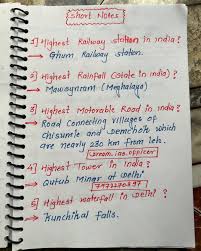 Short Notes
1] Highest Railway station in india?
→ Ghum Railway station.
2] Highest Rainfall Cotale in india?
→ Mawsynram (Meghalaya)
3] Highest Motorable Road in india?
→ Road Connecting villages of
Chisumle and Demchok which
are nearly 230 km from leh.
Dream.ias.officer
4] Highest Tower in india?
→ Qutub Minar at Delhi
7973270897
5] Highest waterfall in Delhi?
→ Kunchikal Falls.